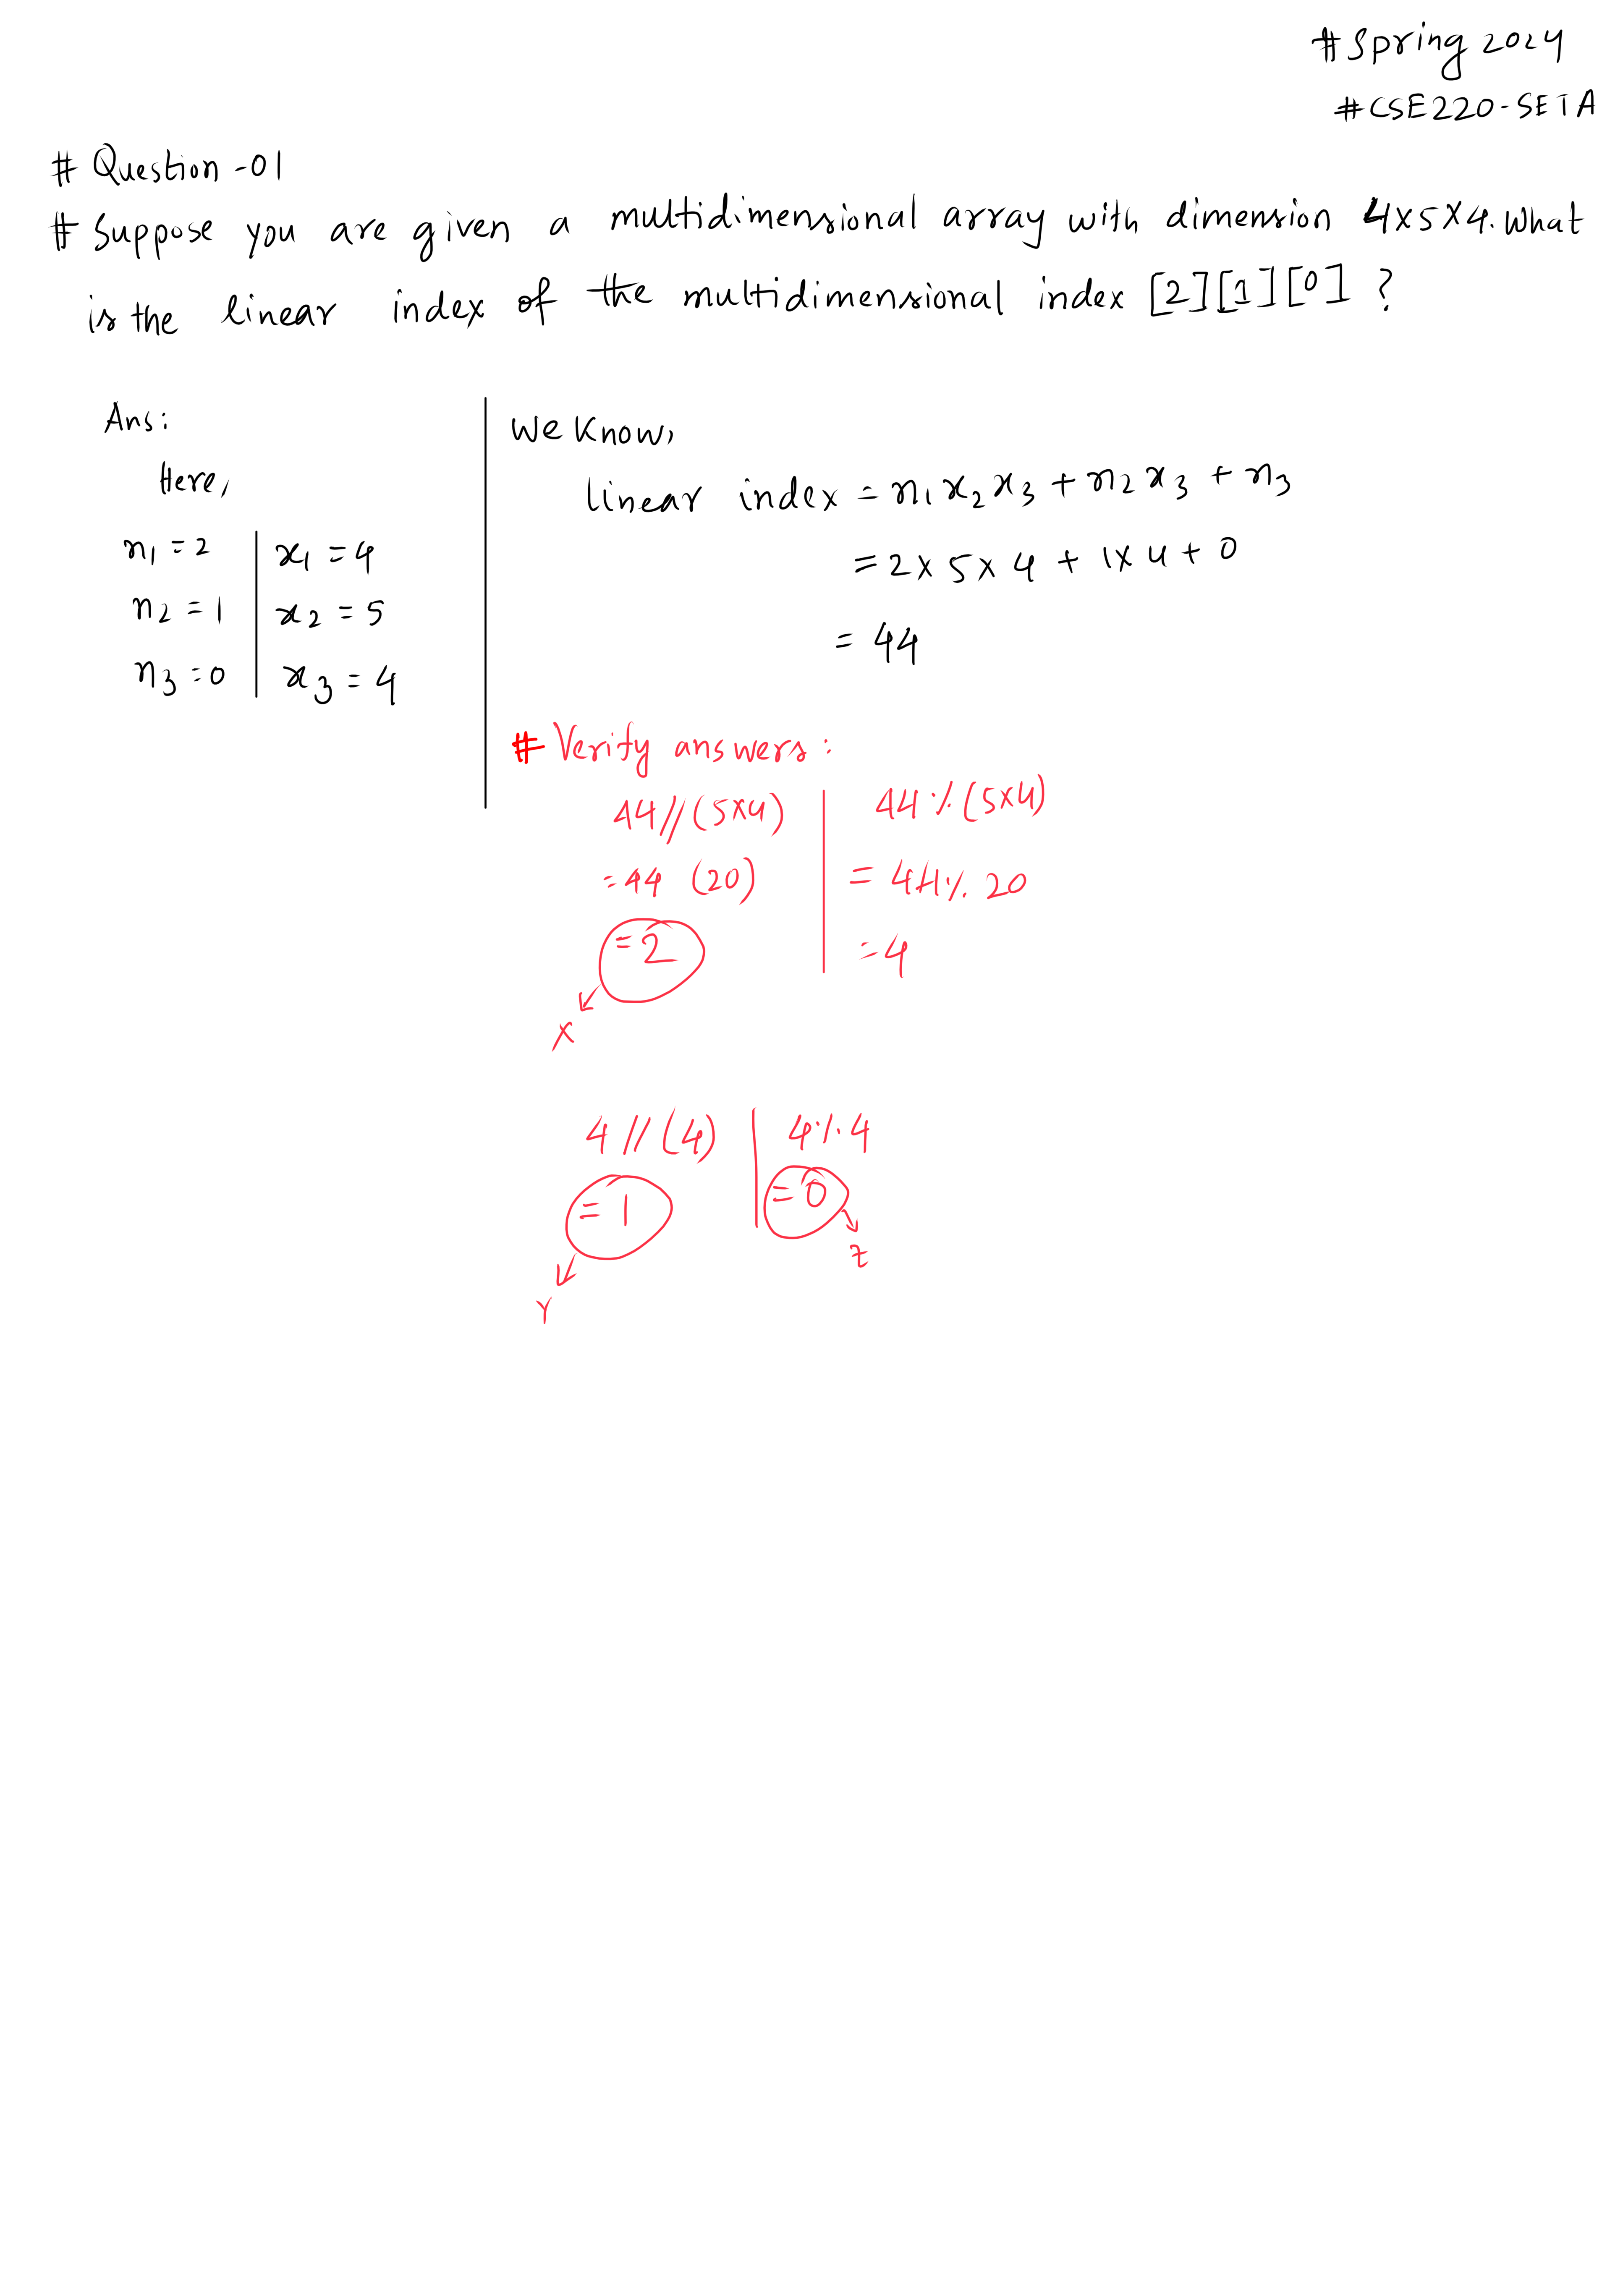 #Spring 2024
#CSE220-SETA
# Question-01
# Suppose you are given a multidimensional array with dimension 4x5x4. What
is the linear index of the multidimensional index [2][1][0] ?
Ans:
Here,
n1 = 2 | x1 = 4
n2 = 1 | x2 = 5
n3 = 0 | x3 = 4
We know,
linear index = n1x2x3 + n2x3 + n3
= 2x5x4 + 1x4 + 0
= 44
# Verify answers:
44//(5x4) | 44%(5x4)
= 44 (20) | = 44% 20
= 2 | = 4
X
4//(4) | 4%4
= 1 | = 0
Z
Y